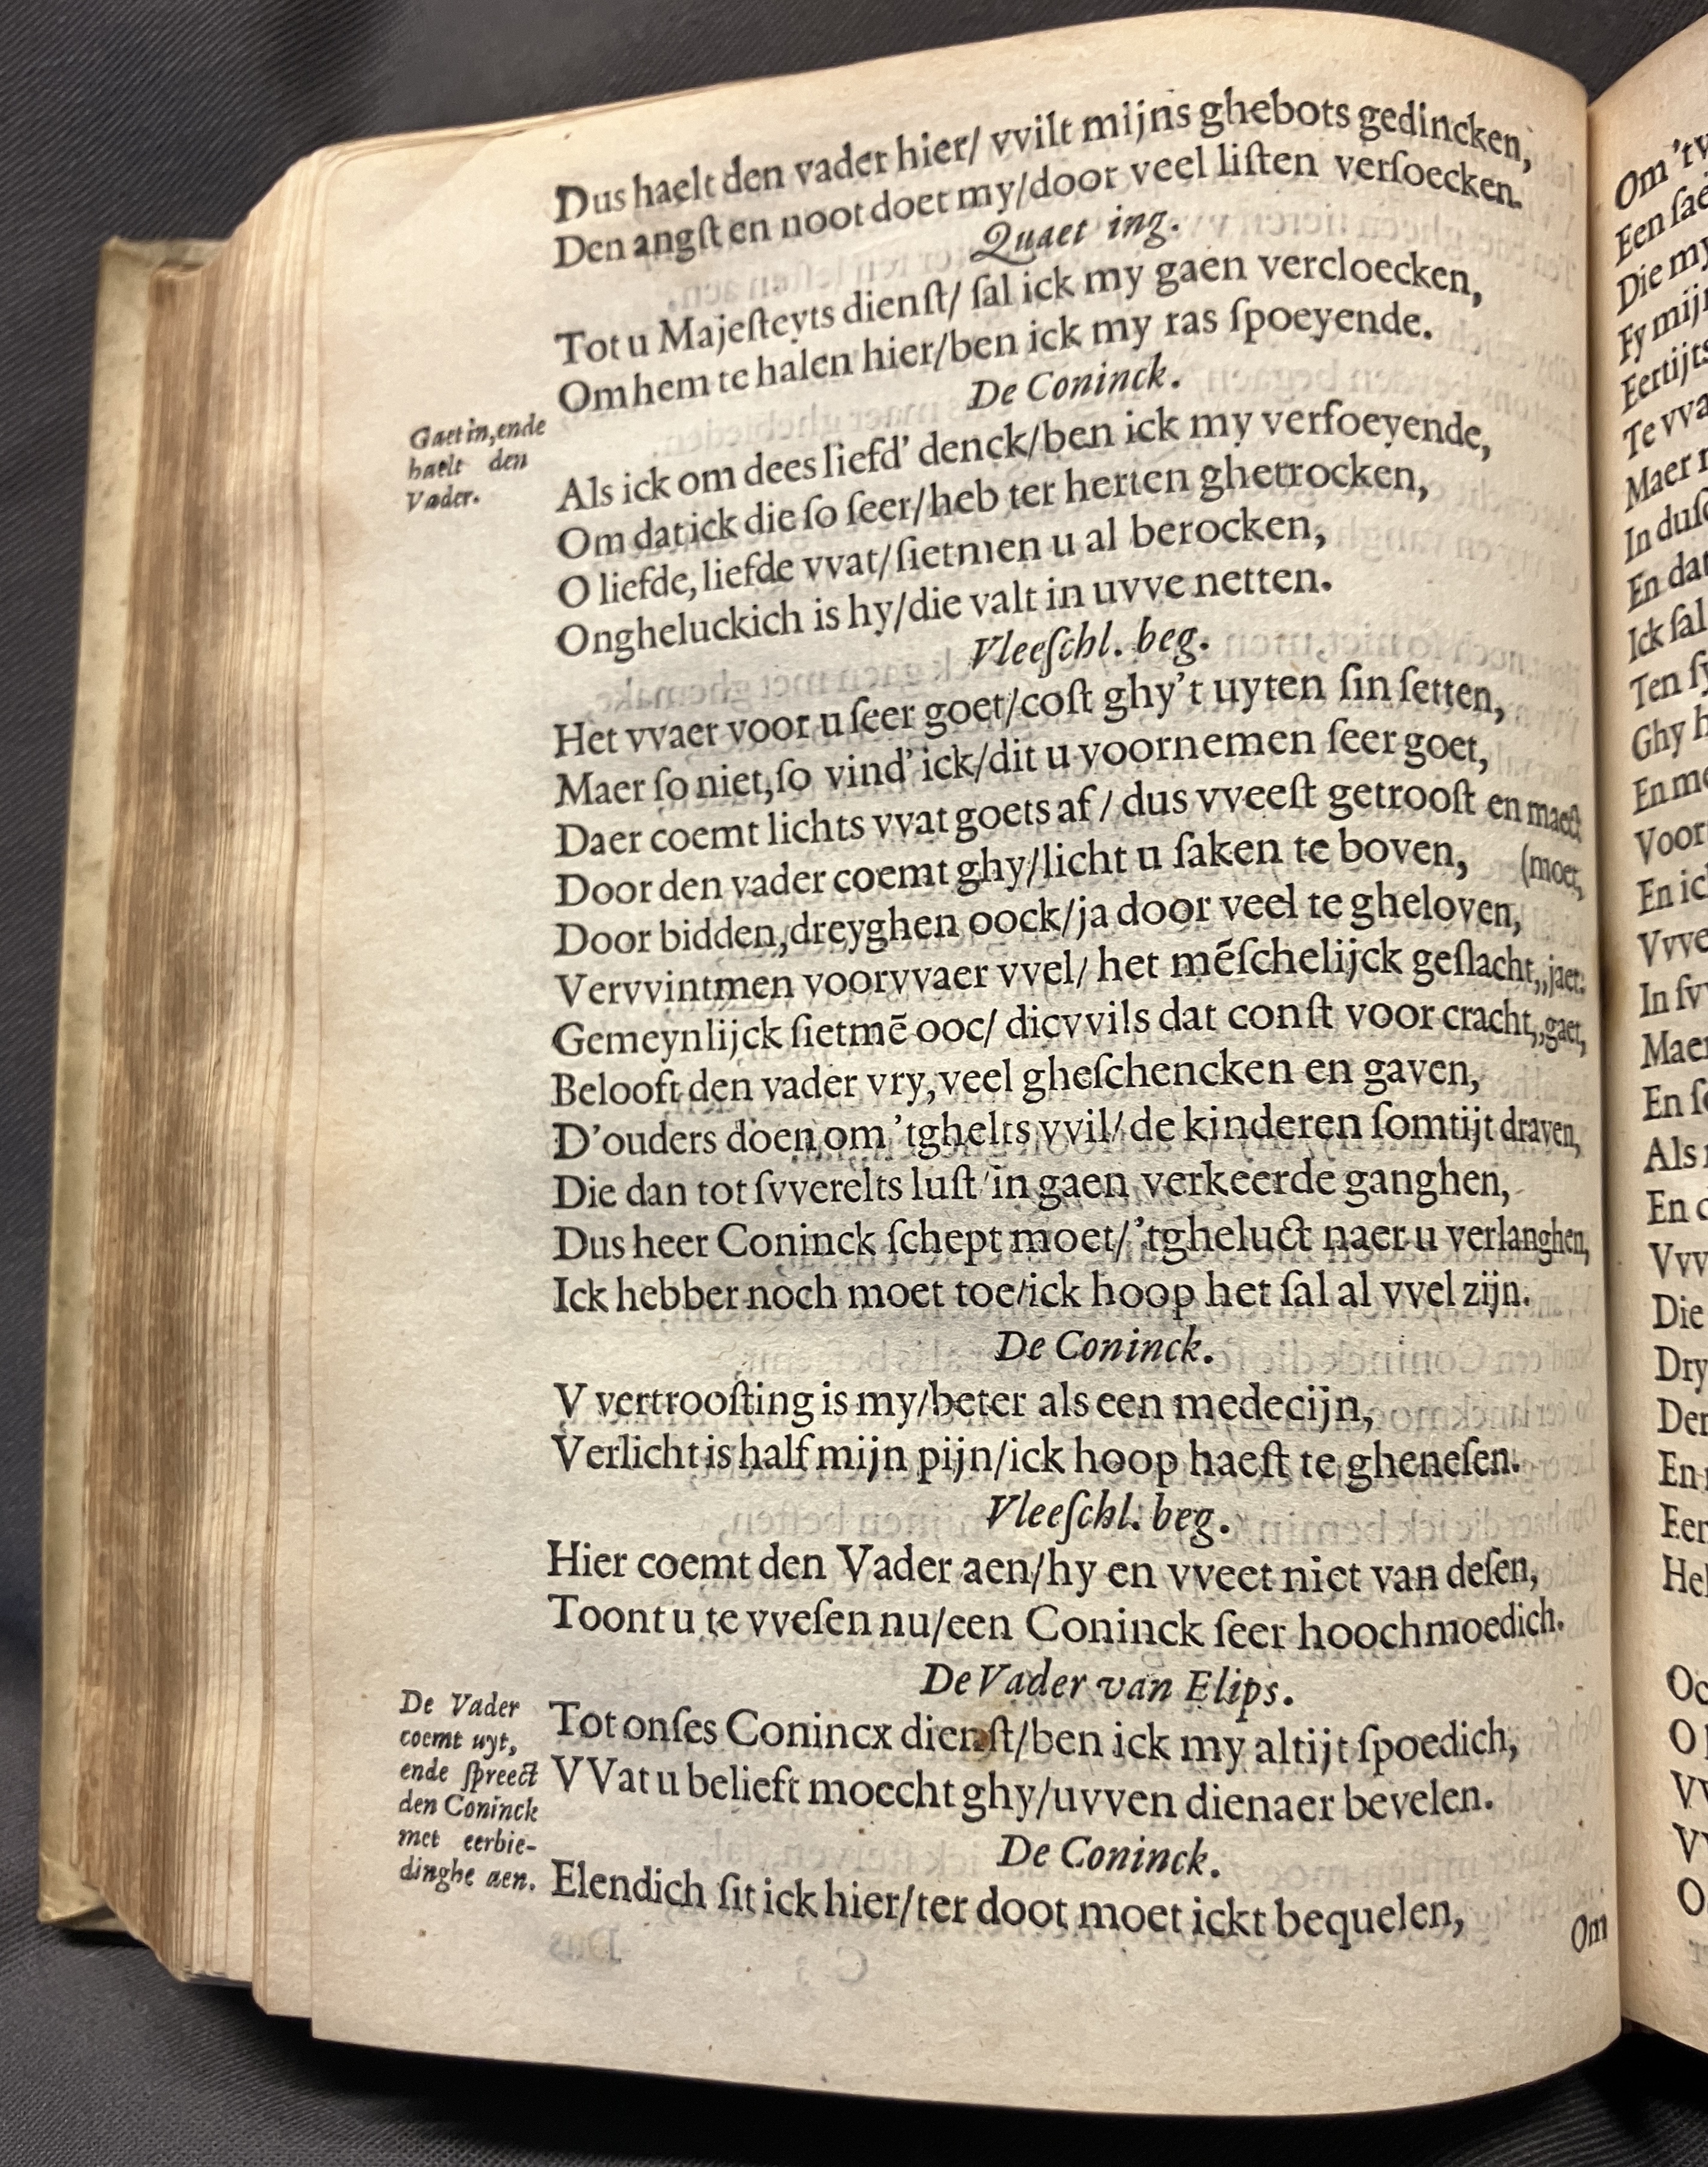 Dus haelt den vader hier/ vvilt mijns ghebots gedincken,
Den angſt en noot doet my/door veel liſten verſoecken.
Quaet ing.
Tot u Majeſteyts dienſt/ ſal ick my gaen vercloecken,
Om hem te halen hier/ben ick my ras ſpoeyende.
De Coninck.
Gaet in, ende
haelt den
Vader.
Als ick om dees liefd' denck/ben ick my verfoeyende,
Om dat ick die ſo ſeer/heb ter herten ghetrocken,
O liefde, liefde vvat/ſietmen u al berocken,
Ongheluckich is hy/die valt in uvve netten.
Vleeſchl. beg.
Het vvaer voor u ſeer goet/coſt ghy't uyten ſin ſetten,
Maer ſo niet,ſo vind' ick/dit u voornemen ſeer goet,
Daer coemt lichts vvat goets af / dus vveeſt getrooſt en maect
Door den vader coemt ghy/licht u ſaken te boven, (moet,
Door bidden,dreyghen oock/ja door veel te gheloven,
Vervvintmen voorvvaer vvel/ het mẽſchelijck geſlacht,,jaet:
Gemeynlijck ſietmẽ ooc/ dicvvils dat conſt voor cracht,,gaet,
Belooft den vader vry,veel gheſchencken en gaven,
D'ouders doen om 'tghelts vvil/ de kinderen ſomtijt draven,
Die dan tot ſvverelts luſt/in gaen verkeerde ganghen,
Dus heer Coninck ſchept moet/'tgheluct naer u verlanghen,
Ick hebber noch moet toe/ick hoop het ſal al vvel zijn.
De Coninck.
V vertrooſting is my/beter als een medecijn,
Verlicht is half mijn pijn/ick hoop haeſt te gheneſen.
Vleeſchl. beg.
Hier coemt den Vader aen/hy en vveet niet van deſen,
Toont u te vveſen nu/een Coninck ſeer hoochmoedich.
De Vader van Elips.
De Vader
coemt uyt,
ende ſpreect
den Coninck
met eerbie-
dinghe aen.
Tot onſes Conincx dienſt/ben ick my altijt ſpoedich,
VVat u belieft moecht ghy/uvven dienaer bevelen.
De Coninck.
Elendich ſit ick hier/ter doot moet ickt bequelen,
Om
Om 't
Een
Die my
Fy mijn
Eertijts
Te
Maer
In
En dat
Ick ſal
Ten
Ghy
En
Voor
En
In
Maer
En
Als
En
Die
Dry
Den
En
Een
O